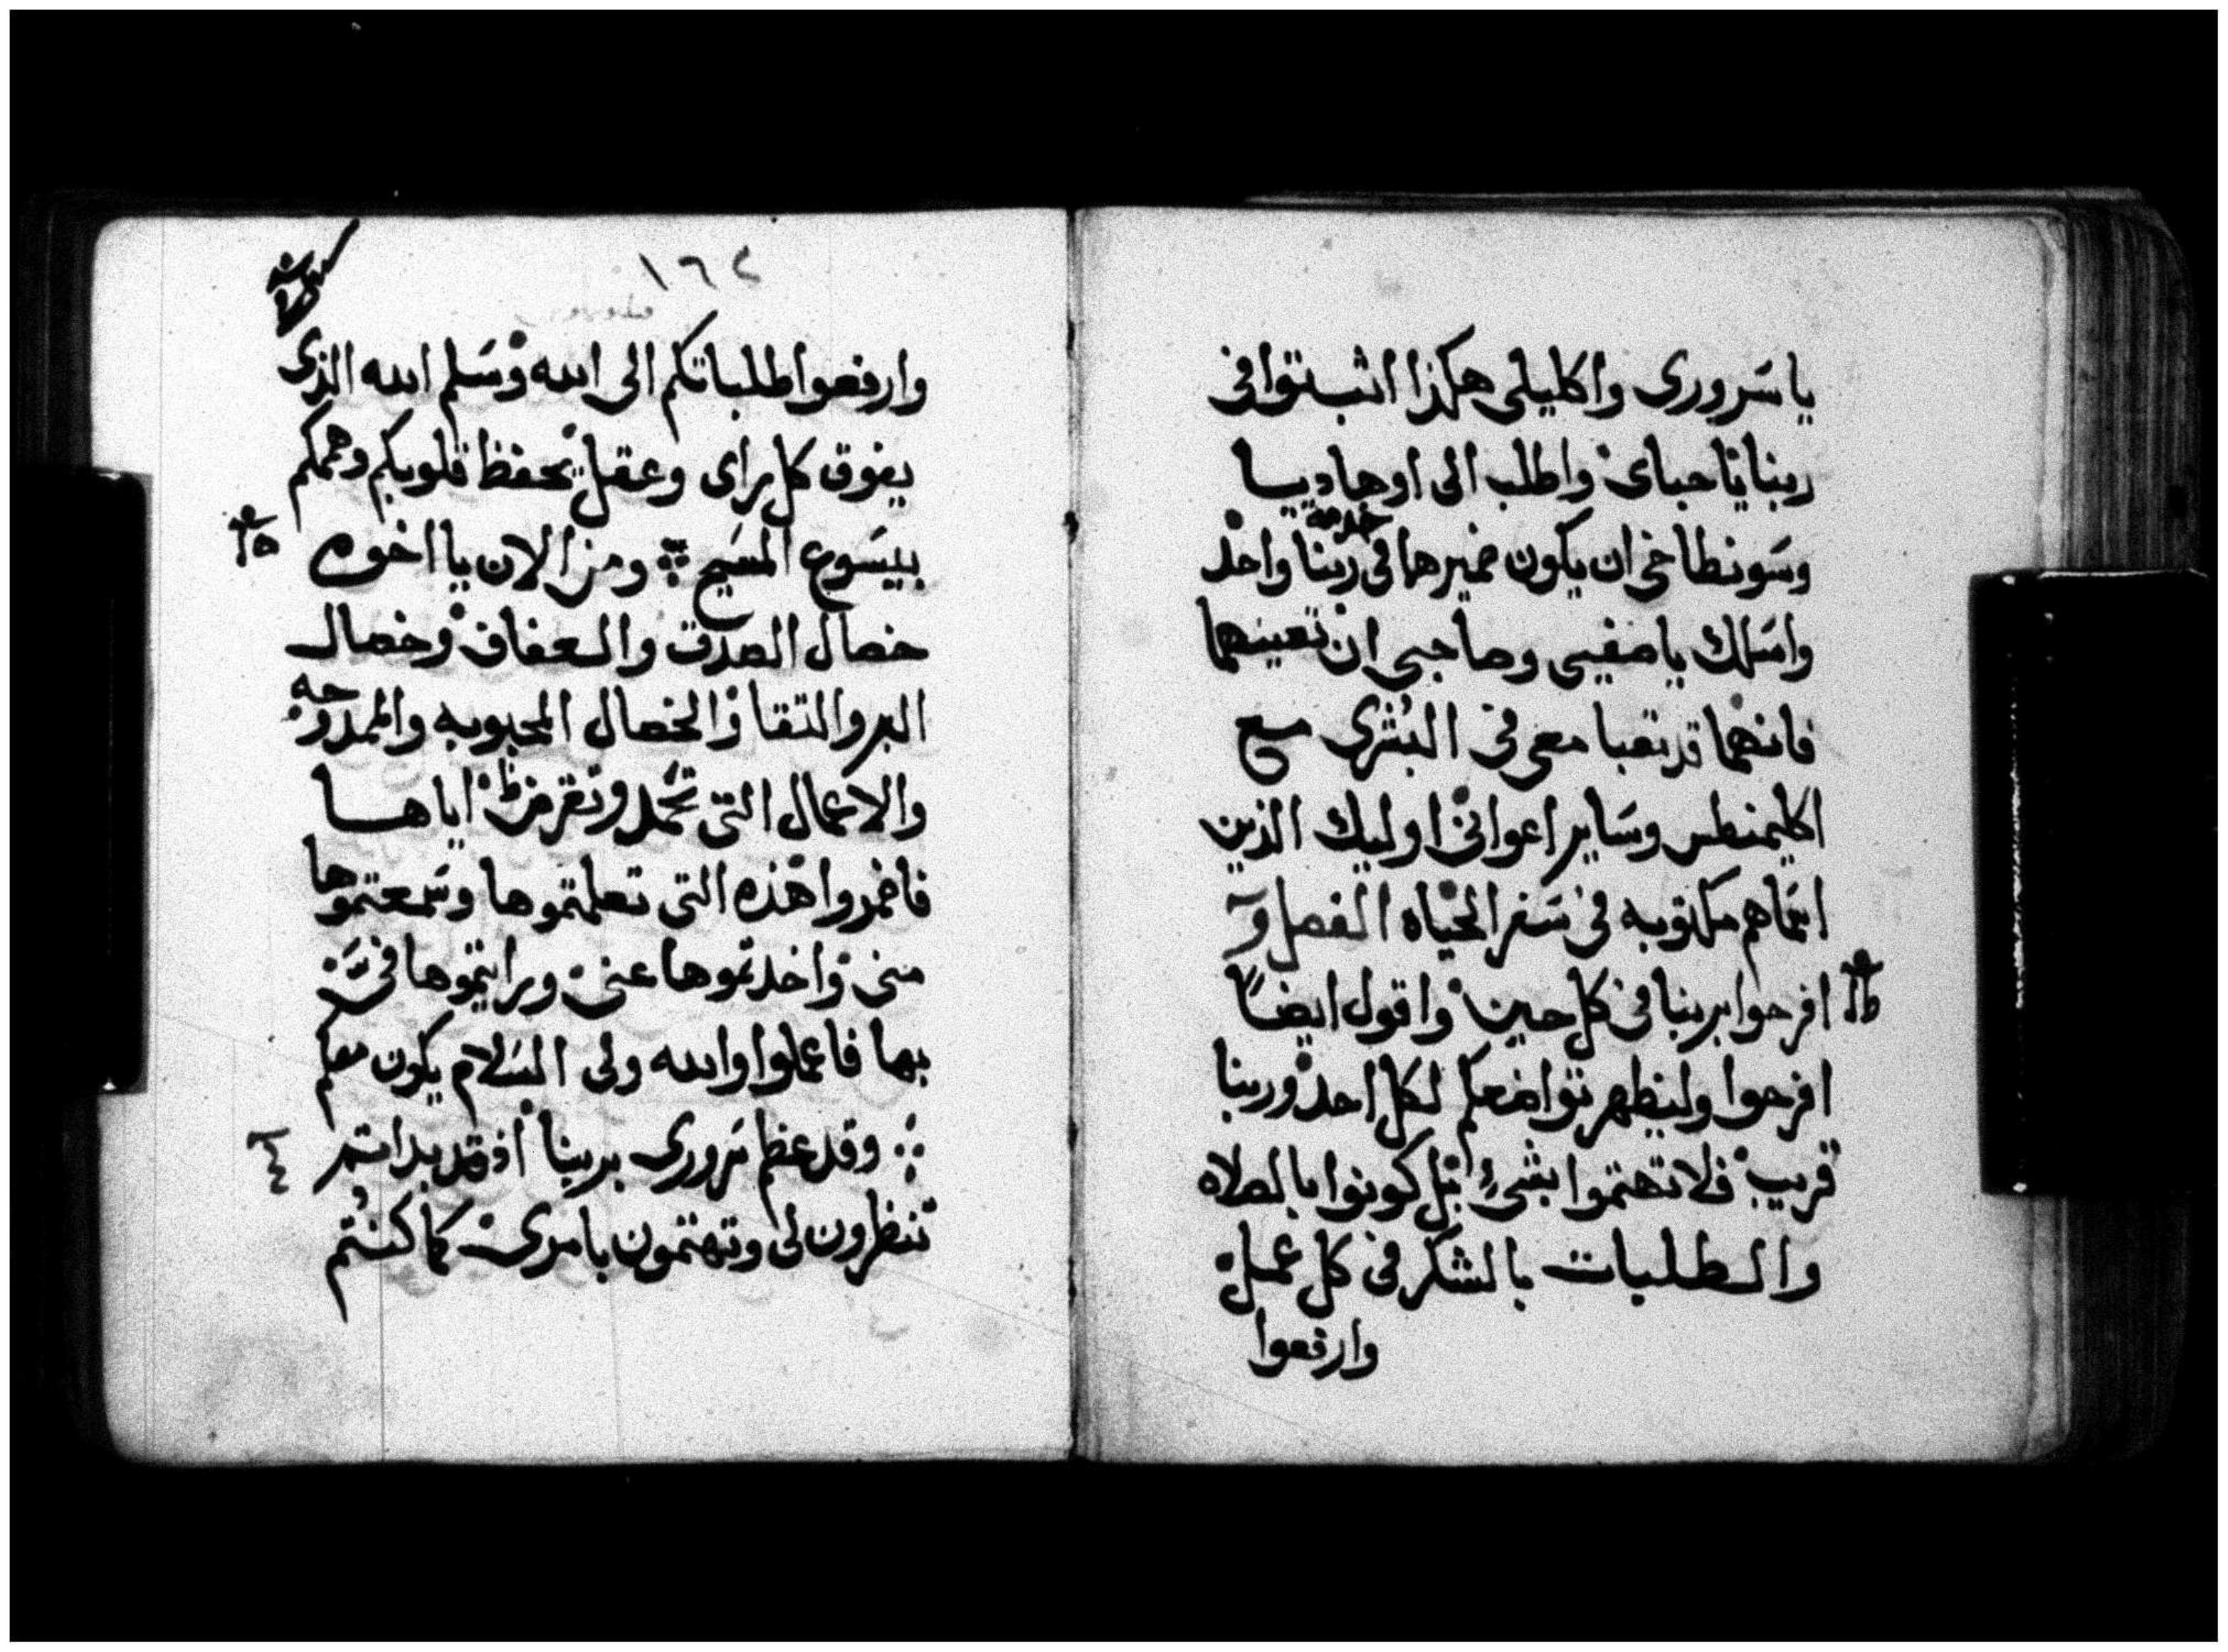 يا سروري واكليلي هكذا اثبتوا في
ربنا يا احباي واطلب الى اوهاديسا
خدمة
وسونطاخي ان يكون ضميرهما في ربنا واحد
واسلك يا صفيي وصاحبي ان تعينهما
فانهما قد تعبا معي في البشرى مع
اكليمنطس وساير اعواني اوليك الذين
اسماهم مكتوبه في سفر الحياه الفصل
افرحوا بربنا في كل حين واقول ايضاً
افرحوا وليظهر تواضعكم لكل احد وربنا
قريب فلا تهتموا بشيء بل كونوا بالصلاه
والطلبات بالشكر في كل عمل
وارفعوا
١٦٢
وارفعوا طلباتكم الى الله وسلم الله الذى
يفوق كل راى وعقل يحفظ قلوبكم وهممكم
بيسوع المسيح ومن الان يا اخوه
خصال الصدق والعفاف وخصال
البر والتقا والخصال المحبوبه والممدوحه
والاعمال التي تحمد وتقرض اياها
فاضمروا هذه التي تعلمتموها وسمعتموها
مني واخدتموها عني ورايتموها في
بها فاعملوا والله ولى السلام يكون معكم
وقد عظم سرورى بربنا اذ قد بداتم
تنظرون لى وتهتمون بامرى كما كنتم